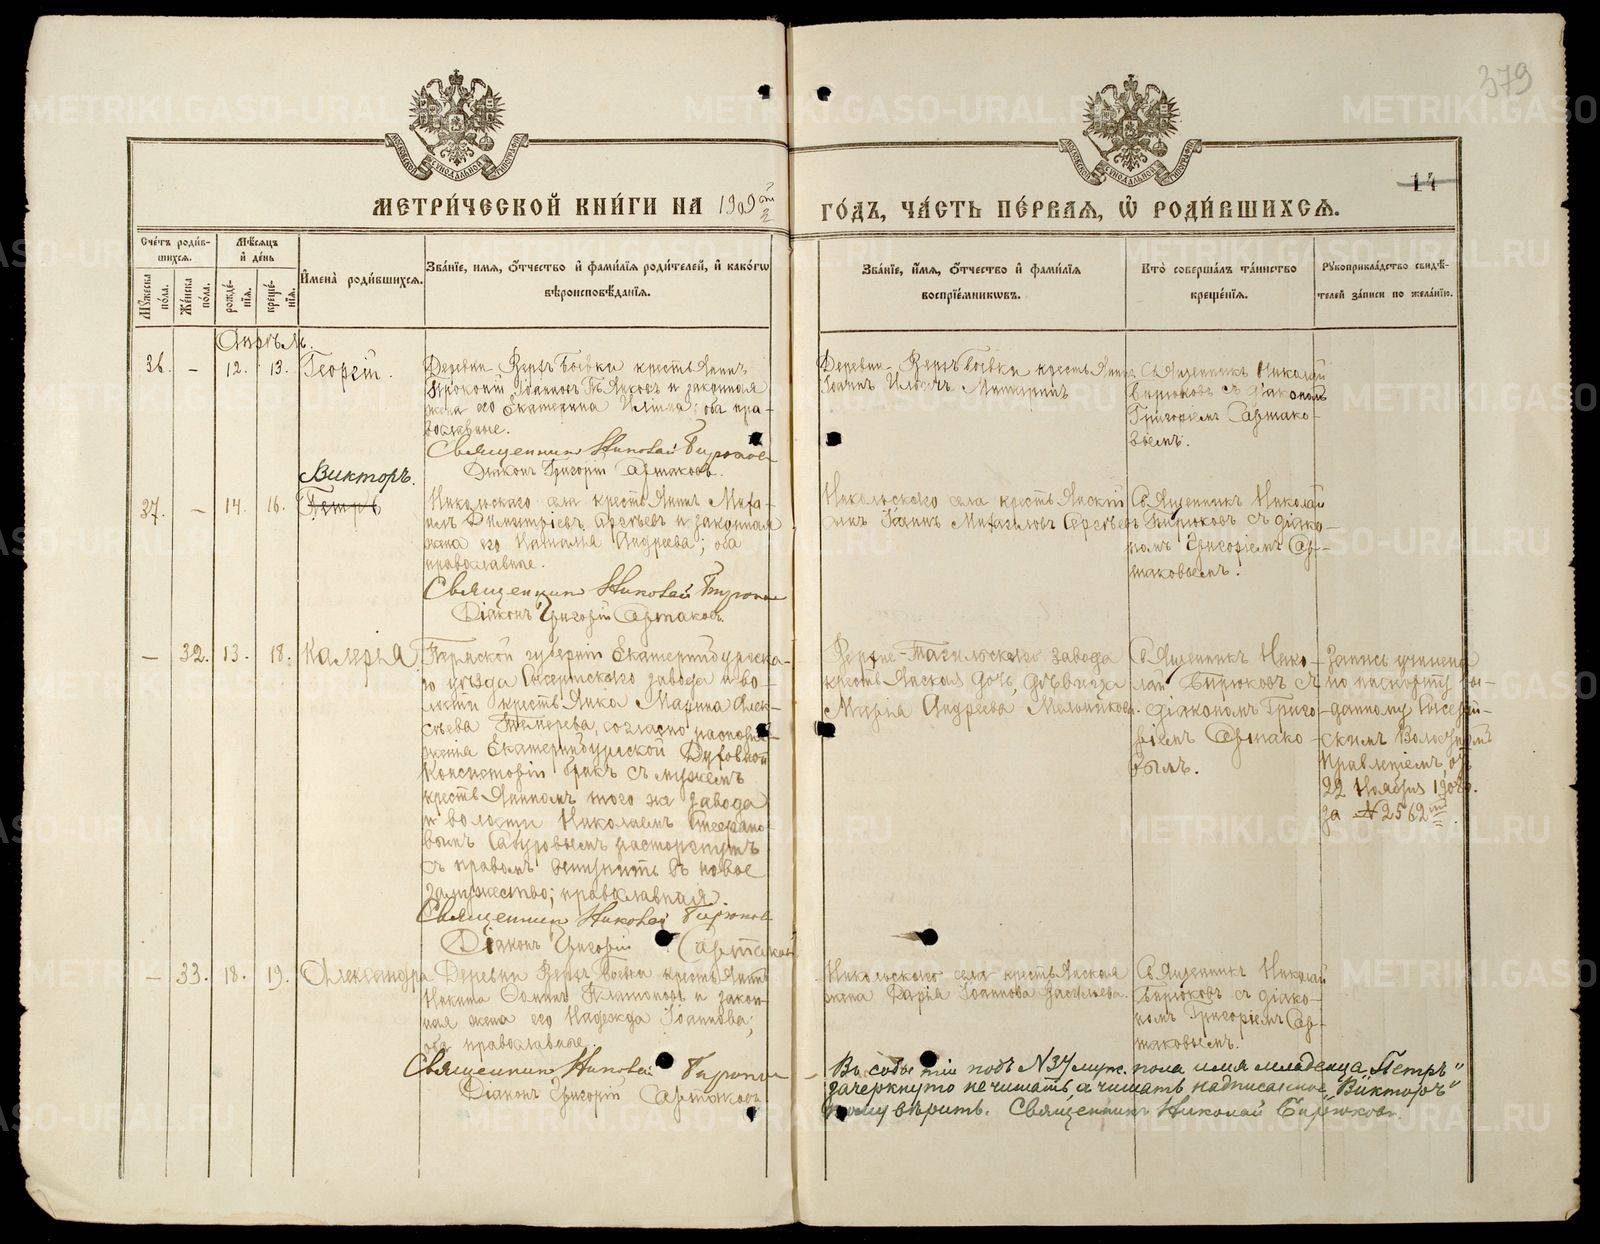 379
14
МЕТРИ́ЧЕСКОЙ КНИ́ГИ НА 1909 й
ГО́ДЪ, ЧА́СТЬ ПЕ́РВАЯ, Ѡ РОДИ́ВШИХСЯ.
Сче́тъ роди́вшихся.
Мѣ́сяцъ и де́нь
Мꙋ́жеска по́ла.
Же́нска по́ла.
рожде́нїя.
креще́нїя.
Имена̀ роди́вшихся.
Зва́нїе, имя, о́тчество и фами́лїя роди́телей, и како́гѡ
вѣроисповѣ́данїя.
Зва́нїе, и́мя, о́тчество и фами́лїя
воспрїе́мникѡвъ.
Кто̀ соверша́лъ та́инство
креще́нїя.
Рꙋкоприкла́дство свидѣ́-
телей за́писи по жела́нїю.
Апрѣль.
36. - 12. 13. Георгій.
Деревни Верхъ Боевки крестьянинъ
Прокопій Іоанновъ и законная
жена его Екатерина Ильина; оба пра-
вославные.
Священникъ Николай Бирюковъ
Діаконъ Григорій
Деревни Верхъ Боевки крестьянинъ
Іоаннъ Ильичъ
Священникъ Николай
Бирюковъ съ діакономъ
Григоріемъ
37. - 14. 16. Викторъ.
Петръ
Никольскаго села крестьянинъ Миха-
илъ Димитріевъ и законная
жена его Наталья Андреева; оба
православные.
Священникъ Николай Бирюковъ
Діаконъ Григорій
Никольскаго села крестьянскій
сынъ Іоаннъ Михаиловъ
Священникъ Николай
Бирюковъ съ діако-
номъ Григоріемъ
- 32. 13. 18. Калерія.
Пермской губерніи Екатеринбургска-
го уѣзда Сысертскаго завода и во-
лости крестьянка Марина Алек-
сѣева согласно распоря-
женія Екатеринбургской Духовной
Консисторіи бракъ съ мужемъ
крестьяниномъ того же завода
и волости Николаемъ
расторгнутъ
съ правомъ вступить въ новое
замужество; православная.
Священникъ Николай Бирюковъ
Діаконъ Григорій
Верхне-Тагильскаго завода
крестьянская дочь, дѣвица
Марія Андреева Мельникова.
Священникъ Нико-
лай Бирюковъ съ
діакономъ Григо-
ріемъ
Запись учинена
по паспорту вы-
данному Сысерт-
скимъ Волостнымъ
Правленіемъ отъ
22 Ноября 1908 г.
за № 2562
- 33. 18. 19. Александра
Деревни Верхъ Боевки крестьянинъ
Никита и закон-
ная жена его Надежда Іоаннова;
оба православные.
Священникъ Николай Бирюковъ
Діаконъ Григорій
Никольскаго села крестьянская
жена Дарія Іоаннова
Священникъ Николай
Бирюковъ съ діако-
номъ Григоріемъ
Въ событіи подъ №37 муж. пола имя младенца „Петръ"
зачеркнуто не читать а читать надписанное „Викторъ"
тому вѣрить. Священникъ Николай Бирюковъ.
METRIKI.GASO-URAL.RU